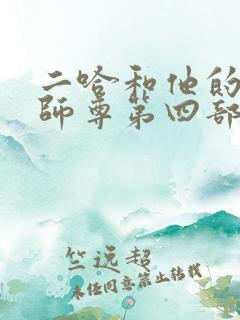 二哈和他的
師尊第四部
竺远超
未经同意禁止转载